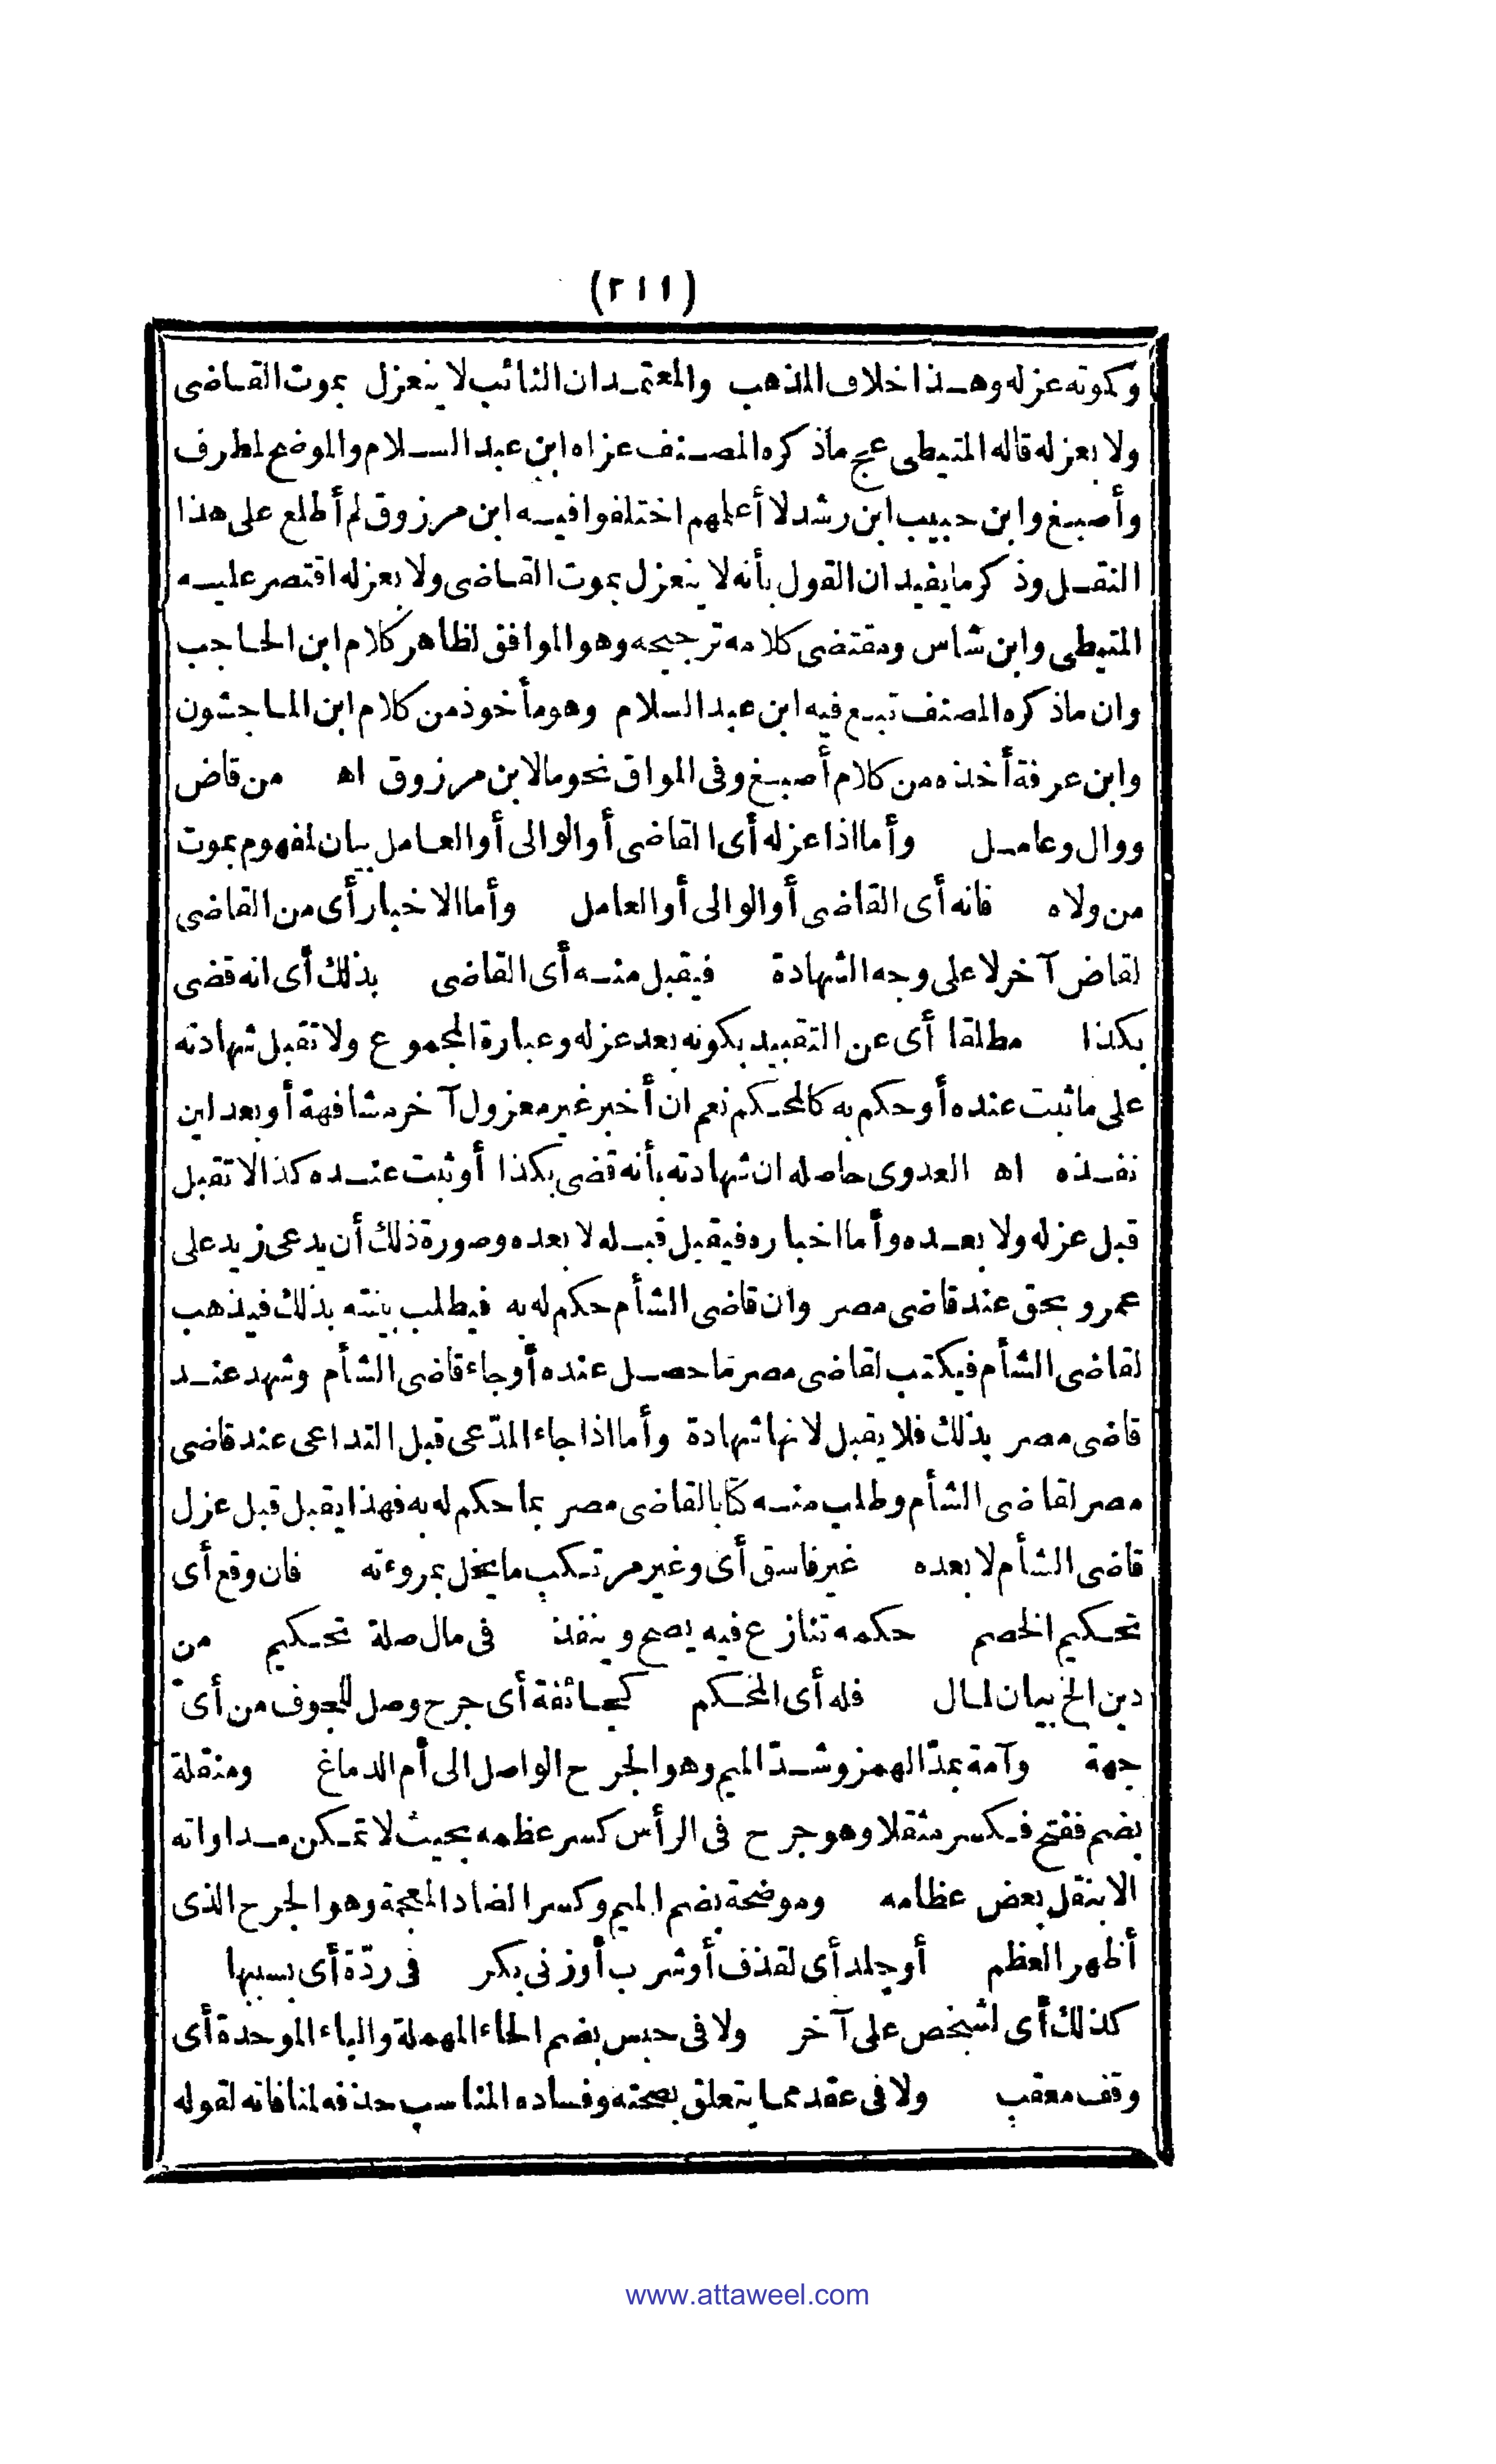 (٢١١)
وكموته عزله وهذا خلاف المذهب والمعتمد ان النائب لا ينعزل بموت القاضى
ولا بعزله قاله المتيطى عج ماذكره المصنف عزاه ابن عبد السلام والموضح لمطرف
وأصبغ وابن حبيب ابن رشد لا أعلمهم اختلفوا فيه ابن مرزوق لم أطلع على هذا
النقل وذكر ما يفيد ان القول بأنه لا ينعزل بموت القاضى ولا بعزله اقتصر عليه
المتيطى وابن شاس ومقتضى كلامه ترجيحه وهو الموافق لظاهر كلام ابن الحاجب
وان ماذكره المصنف تبع فيه ابن عبد السلام وهو مأخوذ من كلام ابن الماجشون
وابن عرفة أخذه من كلام أصبغ وفى المواق نحو مالابن مرزوق اه من قاض
ووال وعامل وأما اذا عزله أى القاضى أو الوالى أو العامل بيان لمفهوم بموت
من ولاه فانه أى القاضى أو الوالى أو العامل وأما الاخبار أى من القاضى
لقاض آخر لا على وجه الشهادة فيقبل منه أى القاضى بذلك أى انه قضى
بكذا مطلقا أى عن التقييد بكونه بعد عزله وعبارة المجموع ولا تقبل شهادته
على ما ثبت عنده أو حكم به كالمحكم نعم ان أخبر غير معزول آخر مشافهة أو بعد اين
نفذه اه العدوى حاصله ان شهادته بأنه قضى بكذا أو ثبت عنده كذا لا تقبل
قبل عزله ولا بعده وأما اخباره فيقبل قبله لا بعده وصورة ذلك أن يدعى زيد على
عمرو بحق عند قاضى مصر وان قاضى الشأم حكم له به فيطلب بينته بذلك فيذهب
لقاضى الشأم فيكتب لقاضى مصر ما حصل عنده أو جاء قاضى الشأم وشهد عند
قاضى مصر بذلك فلا يقبل لانها شهادة وأما اذا جاء المدّعى قبل التداعى عند قاضى
مصر لقاضى الشأم وطلب منه كتابا لقاضى مصر بما حكم له به فهذا يقبل قبل عزل
قاضى الشأم لا بعده غير فاسق أى وغير مرتكب ما يخل بمروءته فان وقع أى
تحكيم الخصم حكمه تنازع فيه يصح وينفذ فى مال صلة تحكيم من
دين الخ بيان لمال فله أى المحكم كجائفة أى جرح وصل للجوف من أى
جهة وآمة بمدّ الهمز وشدّ الميم وهو الجرح الواصل الى أم الدماغ ومنقلة
بضم ففتح فكسر مثقلا وهو جرح فى الرأس كسر عظمه بحيث لا تمكن مداواته
الا بنقل بعض عظامه وموضحة بضم الميم وكسر الضاد المعجمة وهو الجرح الذى
أظهر العظم أو جلد أى لقذف أو شرب أو زنى بكر فى ردّة أى بسببها
كذلك أى لشخص على آخر ولا فى حبس بضم الحاء المهملة والباء الموحدة أى
وقف معقب ولا فى عقد مما يتعلق بصحته وفساده المناسب حذفه لمنافاته لقوله
www.attaweel.com